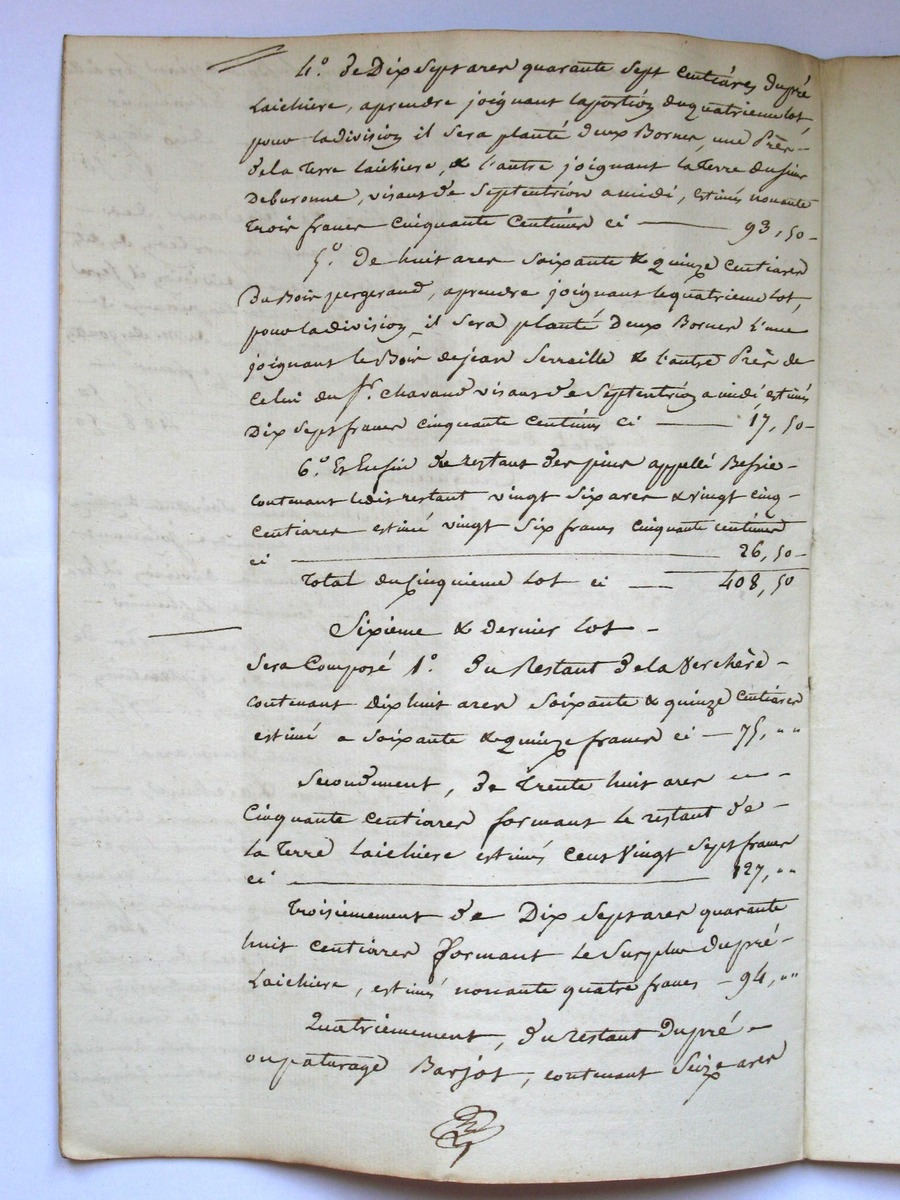 4.° de Dix Sept ares quarante sept Centiares du pré
Laichiere, aprendre joignant la portion du quatrieme lot,
pour la division il Sera planté deux Bornes, une Près
de la Terre Laichiere, & l'autre joignant la Terre du sieur
Deburonne, visant de Septentrion a midi, Estimés nonante
trois francs Cinquante Centimes ci — 93,50
5.° De huit ares Soixante & quinze Centiares
Du Bois pergeraud, aprendre joignant le quatrieme lot,
pour la division il Sera planté Deux Bornes l'une
joignant le Bois de jean Serraille & l'autre Près de
Celui du Sr. Chavaud visant de Septentrion a midi, estimés
Dix Sept francs Cinquante Centimes Ci — 17,50
6.° Et Enfin le restant des pins appellé Bessie
contenant ledit restant vingt Six ares & vingt cinq
Centiares estimé vingt Six francs Cinquante Centimes
ci — 26,50
Total du Cinquieme Lot ci — 408,50
Sixième & dernier lot
Sera Composé 1.° du Restant de la Verchère
contenant Dix huit ares Soixante & quinze Centiares
estimé a Soixante & quinze francs ci — 75, " "
Secondement, de Trente huit ares
Cinquante Centiares formant le restant de
la Terre Laichiere estimés Cent Vingt Sept francs
ci — 127, " "
Troisiemement de Dix Sept ares quarante
huit Centiares formant le Surplus du pré
Laichiere, estimés nonante quatre francs — 94, " "
Quatriemement, du Restant Du pré
ou paturage Barjot, contenant Seize ares